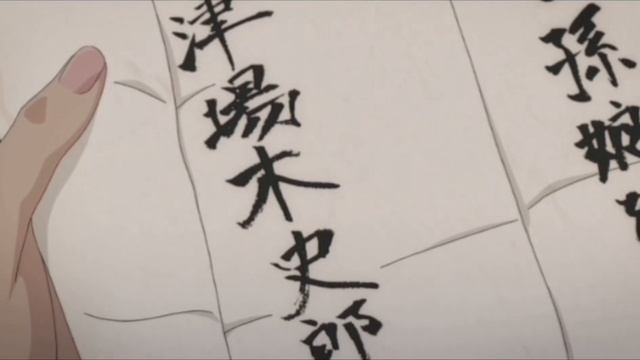 孫娘
津場木史郎